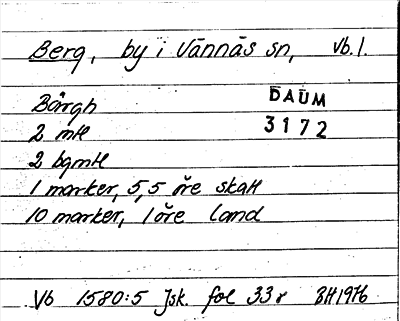 Berg, by i Vännäs sn, Vb. l.
Bårgh DAUM
2 mtl 3172
2 bgmtl
1 marker, 5,5 öre skatt
10 marker, 1 öre land
Vb 1580:5 Jsk. fol 33 r BH 1976